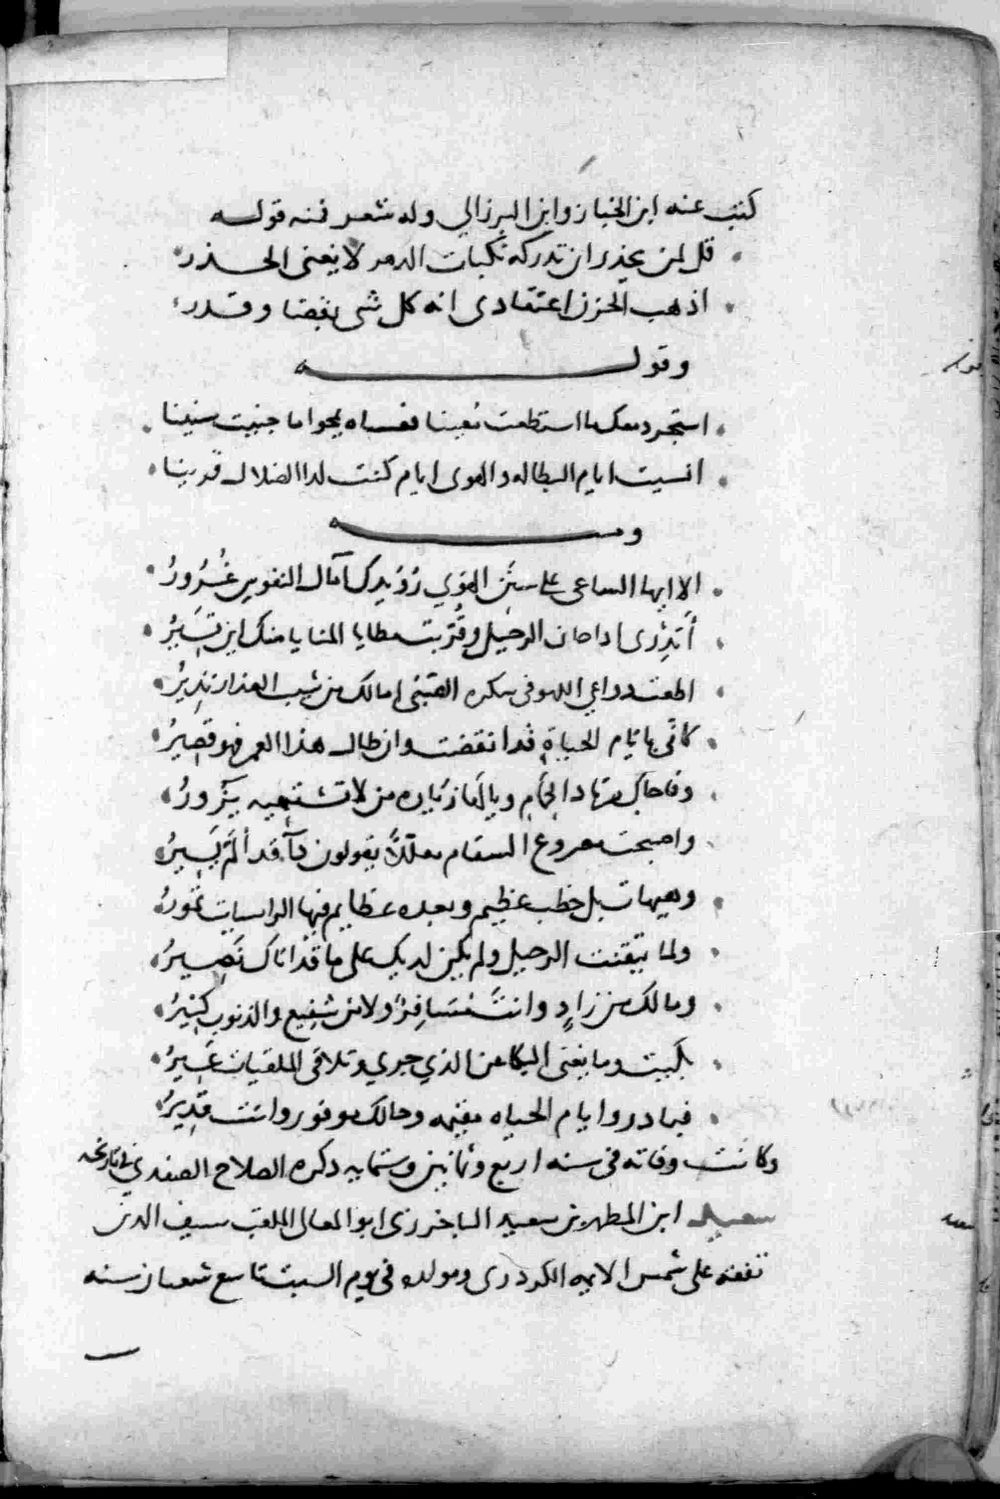 كتب عنه ابن الخباز وابن البرزالي وله شعر فمنه قوله
قل لمن يحذر ان تدركه نكبات الدهر لا يغنى الحذر
اذهب الحزن اعتقادى انه كل شى بقضا وقدر
وقوله
استجر دمعك ما استطعت معينا فعساه يمحوا ما جنيت سنينا
انسيت ايام البطاله والهوى ايام كنت لدا الضلال قرينا
ومنه
الا ايها الساعى على سنن الهوي رُوَيدك آمال النفوس غُرُورُ
أتدرى اذا حان الرحيل وقُرّبت مطايا المنايا منك اين تسَيرُ
اطعت دواعي اللهو فى سكره الصبى امالك من شيب العذار نذيرُ
كانّى بايّام الحياةِ قد انقضت وان طال هذا العمر فهو قصِيرُ
وفاجاك مرتاد الحِمَامِ ويالَها زيارة من لا تشتهيه يَزُورُ
واصبحت مصروع السقام معللاً يقولون دآ قد ألمّ يَسِيرُ
وهيهات بل خطب عظيم وبعده عظايم فيها الراسيات تمُورُ
ولما تيقنت الرحيل ولم يكن لديك على ما قد اتاك نَصِيرُ
ومالك من زادٍ وانتَ مُسَافِرٌ ولا من شفيع والذنوب كثِيرُ
بكَيت وما يغنى البكا عن الذي جري وتلافى المتلفات عَسِيرُ
فبادر وايام الحياه مقيمه وحالك موفور وانت قدِيرُ
وكانت وفاته فى سنه اربع وثمانين وستمايه ذكره الصلاح الصفدي فى تاريخه
سعيد ابن المطهر بن سعيد الباخرزى ابو المعالى الملقب سيف الدين
تفقه على شمس الايمه الكردرى ومولده فى يوم السبت تاسع شعبان سنه